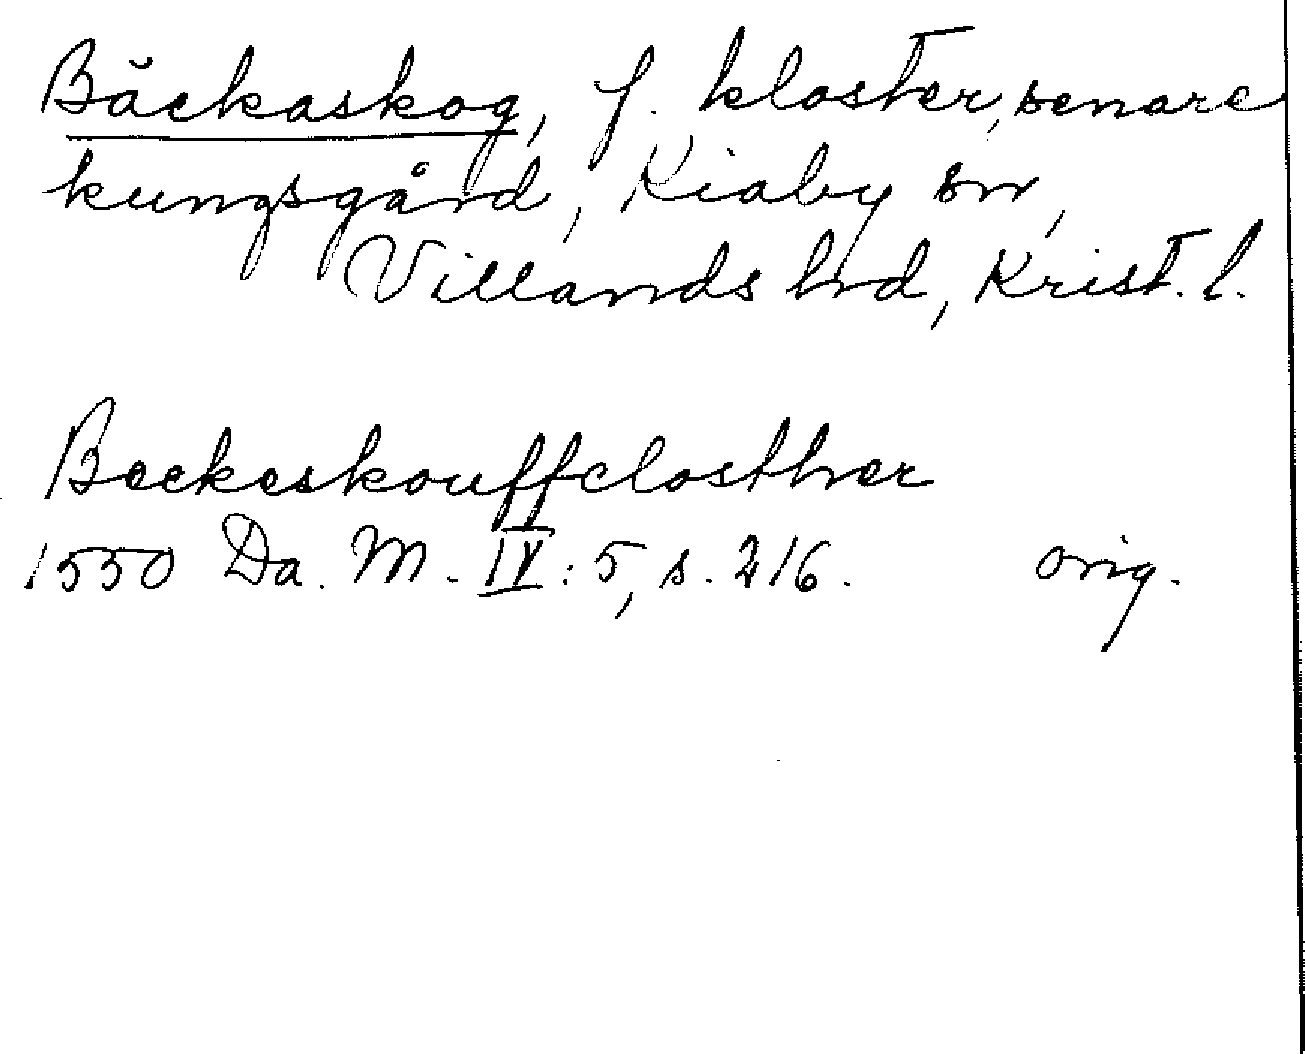 Bäckaskog, f. kloster, senare
kungsgård, Kiaby sn,
Villands hrd, Krist. l.
Beckeskouffclosther
1550 Da. M. IV: 5, s. 216. orig.